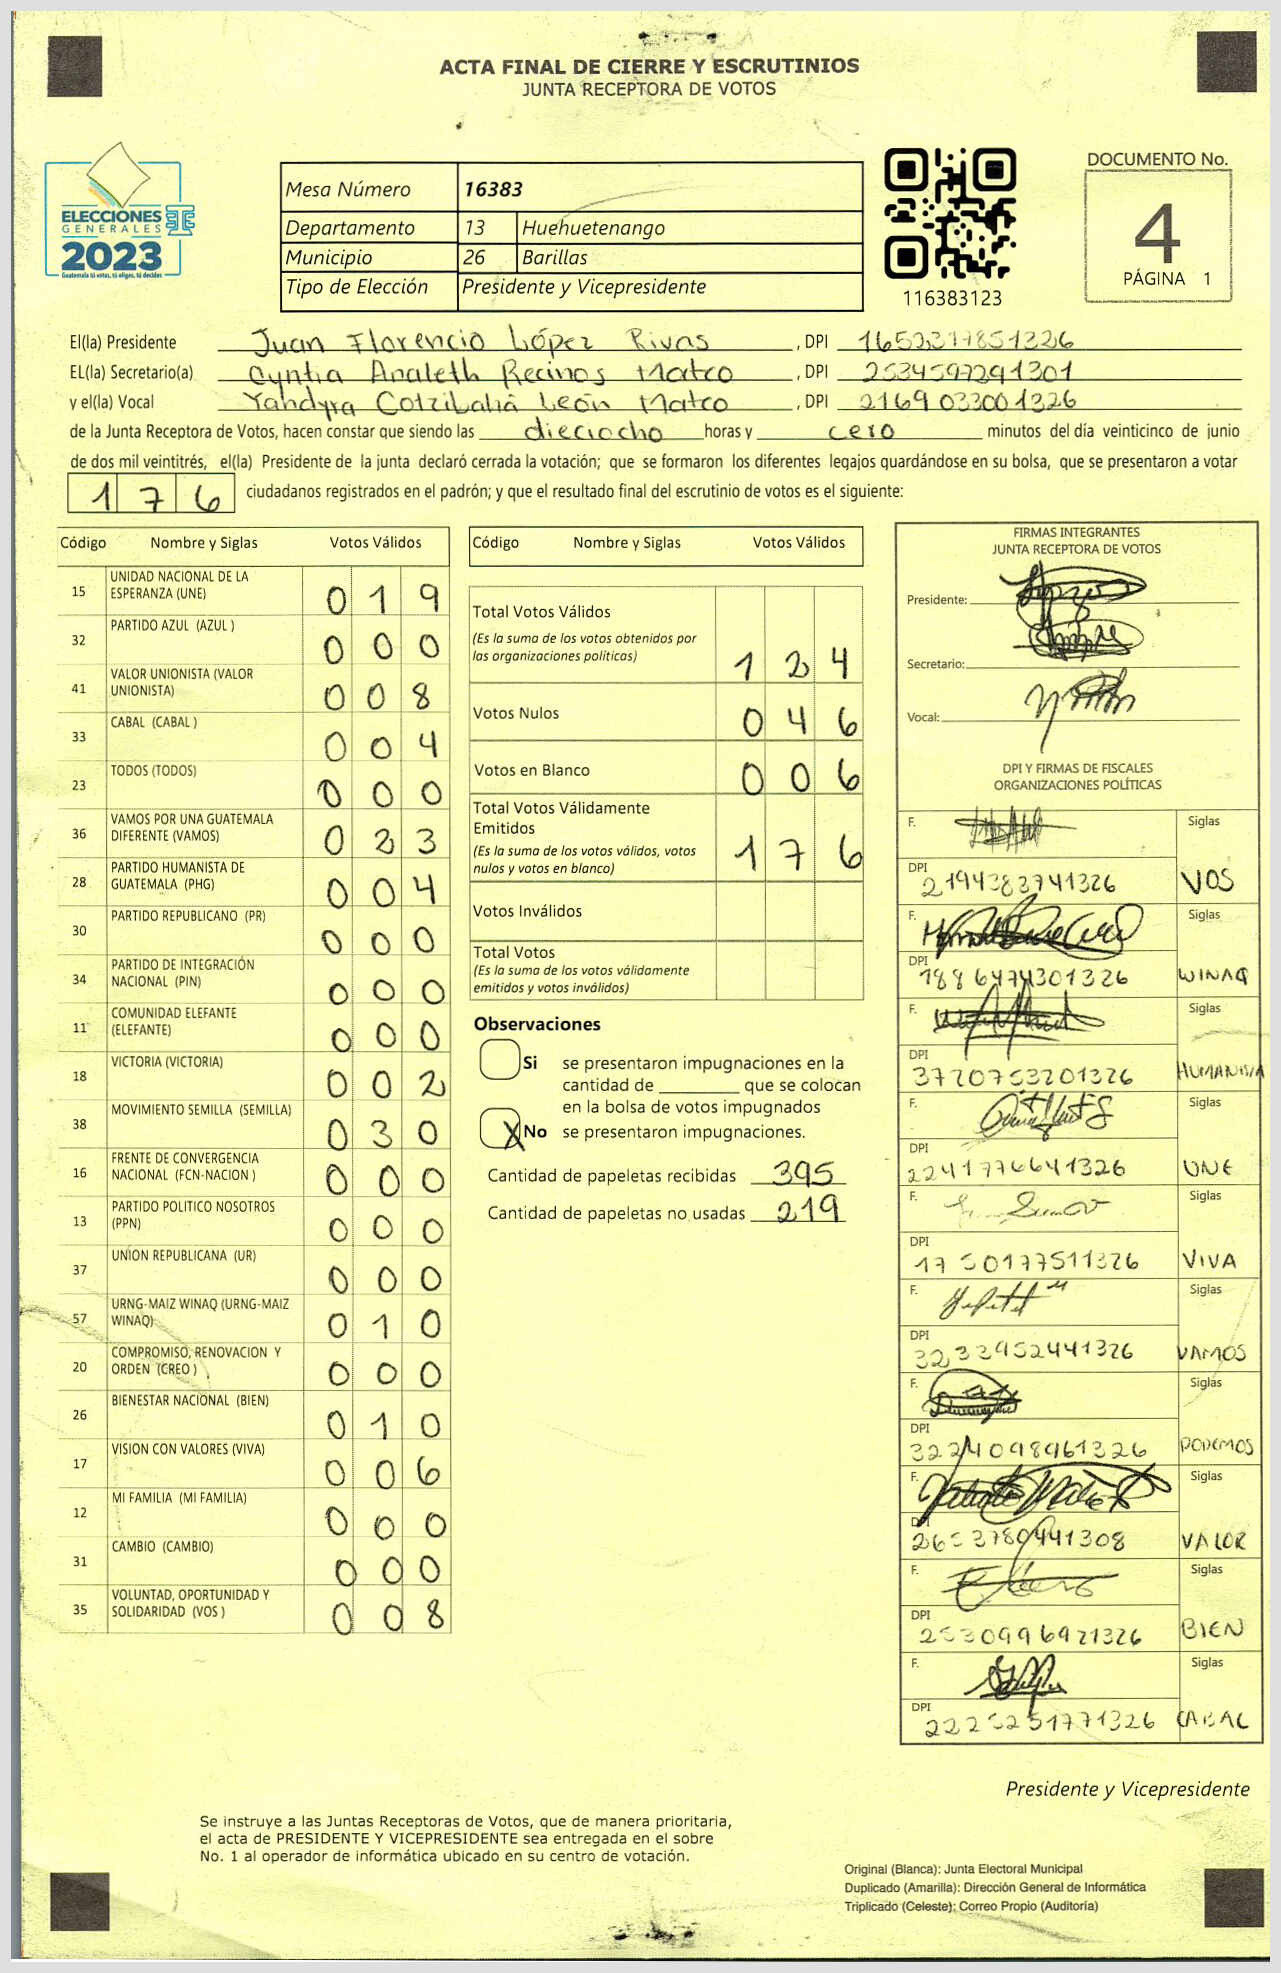 ACTA FINAL DE CIERRE Y ESCRUTINIOS
JUNTA RECEPTORA DE VOTOS
ELECCIONES
GENERALES
2023
Guatemala tú votas, tú eliges, tú decides
Mesa Número 16383
Departamento 13 Huehuetenango
Municipio 26 Barillas
Tipo de Elección Presidente y Vicepresidente
116383123
DOCUMENTO No.
4
PÁGINA 1
El(la) Presidente Juan Florencio López Rivas, DPI
EL(la) Secretario(a) Cyntia Analeth Recinos Mateo, DPI 2534597291301
y el(la) Vocal León Mateo, DPI 2169033001326
de la Junta Receptora de Votos, hacen constar que siendo las dieciocho horas y cero minutos del día veinticinco de junio
de dos mil veintitrés, el(la) Presidente de la junta declaró cerrada la votación; que se formaron los diferentes legajos quardándose en su bolsa, que se presentaron a votar
176 ciudadanos registrados en el padrón; y que el resultado final del escrutinio de votos es el siguiente:
Código Nombre y Siglas Votos Válidos
15 UNIDAD NACIONAL DE LA ESPERANZA (UNE) 019
32 PARTIDO AZUL (AZUL ) 000
41 VALOR UNIONISTA (VALOR UNIONISTA) 008
33 CABAL (CABAL ) 004
23 TODOS (TODOS) 000
36 VAMOS POR UNA GUATEMALA DIFERENTE (VAMOS) 023
28 PARTIDO HUMANISTA DE GUATEMALA (PHG) 004
30 PARTIDO REPUBLICANO (PR) 000
34 PARTIDO DE INTEGRACIÓN NACIONAL (PIN) 000
11 COMUNIDAD ELEFANTE (ELEFANTE) 000
18 VICTORIA (VICTORIA) 002
38 MOVIMIENTO SEMILLA (SEMILLA) 030
16 FRENTE DE CONVERGENCIA NACIONAL (FCN-NACION ) 000
13 PARTIDO POLITICO NOSOTROS (PPN) 000
37 UNION REPUBLICANA (UR) 000
57 URNG-MAIZ WINAQ (URNG-MAIZ WINAQ) 010
20 COMPROMISO, RENOVACION Y ORDEN (CREO ) 000
26 BIENESTAR NACIONAL (BIEN) 010
17 VISION CON VALORES (VIVA) 006
12 MI FAMILIA (MI FAMILIA) 000
31 CAMBIO (CAMBIO) 000
35 VOLUNTAD, OPORTUNIDAD Y SOLIDARIDAD (VOS ) 008
Código Nombre y Siglas Votos Válidos
Total Votos Válidos 124
(Es la suma de los votos obtenidos por
las organizaciones politicas)
Votos Nulos 046
Votos en Blanco 006
Total Votos Válidamente
Emitidos 176
(Es la suma de los votos válidos, votos
nulos y votos en blanco)
Votos Inválidos
Total Votos
(Es la suma de los votos válidamente
emitidos y votos inválidos)
Observaciones
Si se presentaron impugnaciones en la
cantidad de ________ que se colocan
en la bolsa de votos impugnados
X No se presentaron impugnaciones.
Cantidad de papeletas recibidas 395
Cantidad de papeletas no usadas 219
FIRMAS INTEGRANTES
JUNTA RECEPTORA DE VOTOS
Presidente:
Secretario:
Vocal:
DPI Y FIRMAS DE FISCALES
ORGANIZACIONES POLÍTICAS
F. Siglas
DPI 2194383741326 VOS
F. Siglas
DPI 1886474301326 WINAQ
F. Siglas
DPI 3720753201326
F. Siglas
DPI 2241776641326 UNE
F. Siglas
DPI 1750177511326 VIVA
F. Siglas
DPI 3233952441326 VAMOS
F. Siglas
DPI 3224098961326 PODEMOS
F. Siglas
DPI VALOR
F. Siglas
DPI 2530996921326 BIEN
F. Siglas
DPI 2225251771326 CABAL
Presidente y Vicepresidente
Se instruye a las Juntas Receptoras de Votos, que de manera prioritaria,
el acta de PRESIDENTE Y VICEPRESIDENTE sea entregada en el sobre
No. 1 al operador de informática ubicado en su centro de votación.
Original (Blanca): Junta Electoral Municipal
Duplicado (Amarilla): Dirección General de Informática
Triplicado (Celeste): Correo Propio (Auditoría)